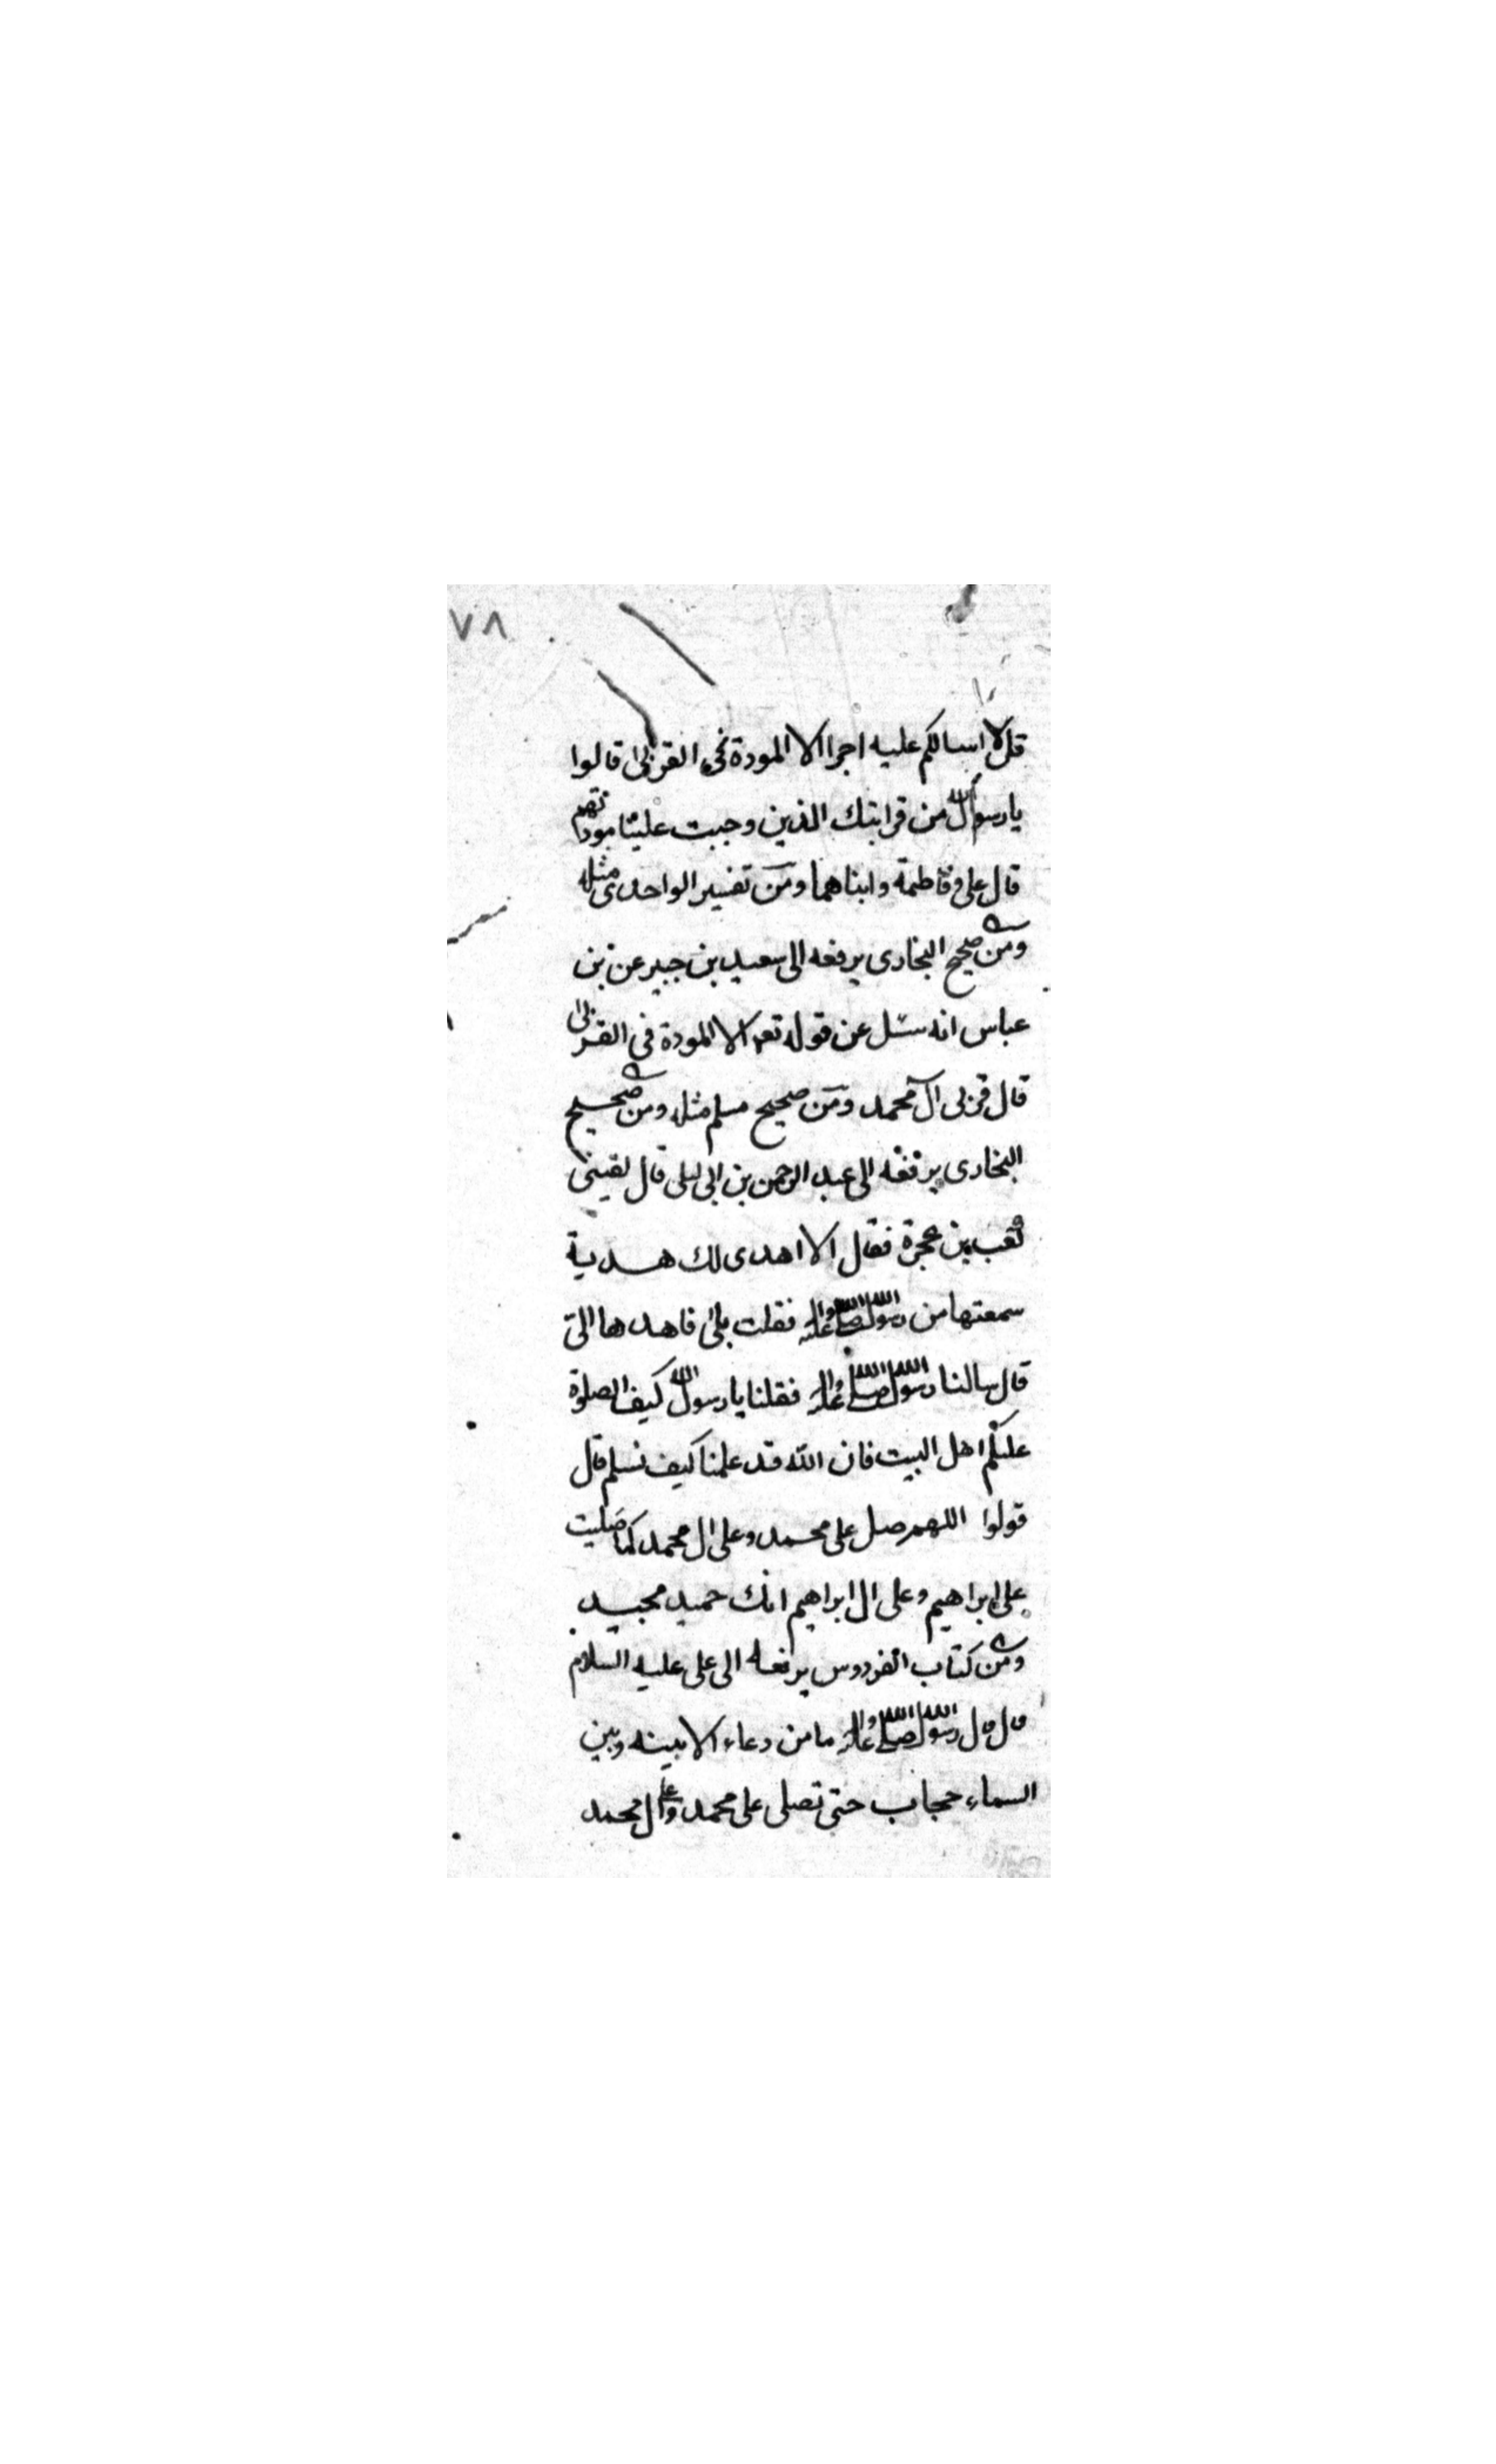 ٧٨
قل لا اسالكم عليه اجرا الا المودة في القربى قالوا
يا رسول الله من قرابتك الذين وجبت علينا مودتهم
قال على وفاطمة وابناهما ومن تفسير الواحدى مثله
ومن صحيح البخارى يرفعه الى سعيد بن جبير عن بن
عباس انه سئل عن قوله تعم الا المودة في القربى
قال قربى ال محمد ومن صحيح مسلم مثله ومن صحيح
البخارى يرفعه الى عبد الرحمن بن ابى ليلى قال لقينى
كعب بن عجرة فقال الا اهدى لك هدية
سمعتها من رسول الله صلى الله عليه واله فقلت بلى فاهدها الى
قال سالنا رسول الله صلى الله عليه واله فقلنا يا رسول الله كيف الصلوة
عليكم اهل البيت فان الله قد علمنا كيف نسلم قال
قولوا اللهم صل على محمد وعلى ال محمد كما صليت
على ابراهيم وعلى ال ابراهيم انك حميد مجيد
ومن كتاب الفردوس يرفعه الى على عليه السلام
قال قال رسول الله صلى الله عليه واله ما من دعاء الا بينه وبين
السماء حجاب حتى تصلى على محمد وعلى ال محمد